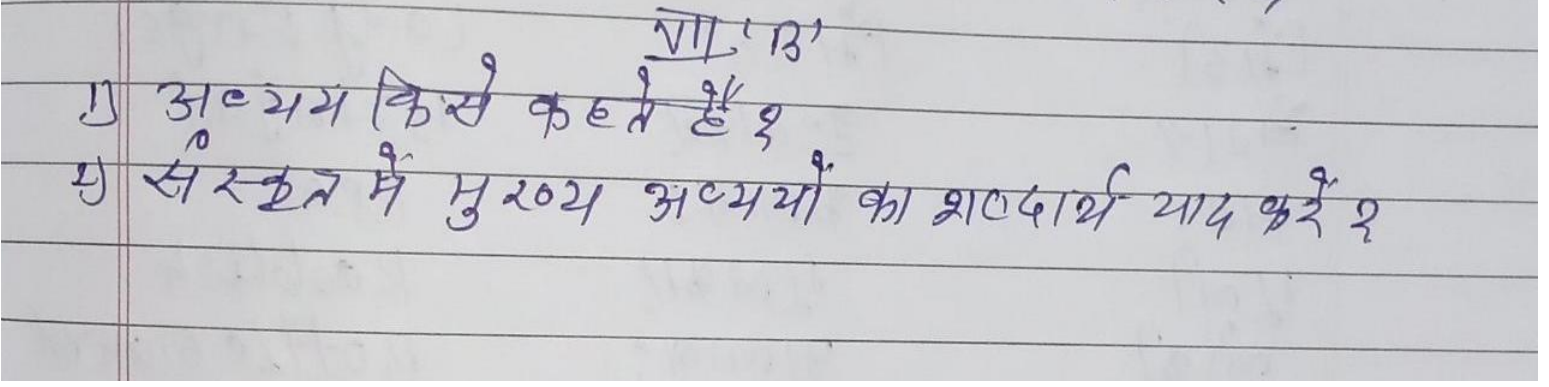 VII 'B'
1) अव्यय किसे कहते हैं ?
2) संस्कृत में मुख्य अव्ययों का शब्दार्थ याद करें ?